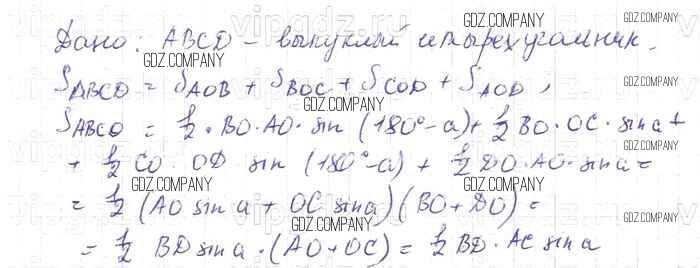 Дано: ABCD – выпуклый четырехугольник.
S_ABCD = S_AOB + S_BOC + S_COD + S_AOD,
S_ABCD = 1/2 · BO · AO · sin (180° - a) + 1/2 BO · OC · sin a +
+ 1/2 CO · OD sin (180° - a) + 1/2 DO · AO · sin a =
= 1/2 (AO sin a + OC sin a)(BO + DO) =
= 1/2 BD sin a · (AO + OC) = 1/2 BD · AC sin a
GDZ.COMPANY
GDZ.COMPANY
GDZ.COMPANY
GDZ.COMPANY
GDZ.COMPANY
GDZ.COMPANY
GDZ.COMPANY
GDZ.COMPANY
GDZ.COMPANY
GDZ.COMPANY
GDZ.COMPANY